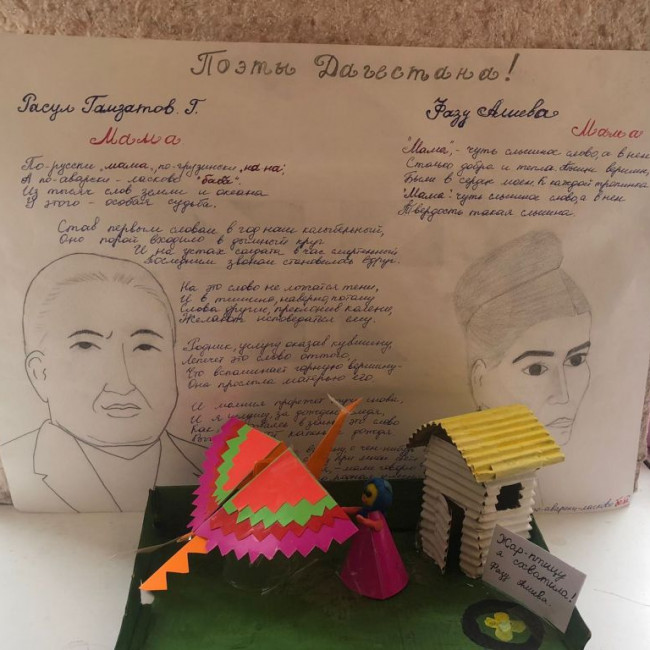 Поэты Дагестана!
Расул Гамзатов. Г.
Мама
По-русски "мама, по-грузински, нана;
А по-аварски - ласково "баба".
Из тысяч слов земли и океана
У этого - особая судьба.
Став первым словом в год наш колыбельный,
Оно порой входило в дымный круг
И на устах солдата в час смертельный
Последним зовом становилось вдруг.
На это слово не ложатся тени,
И в тишине, наверно, потому
Слова другие, преклонив колени,
Желают исповедаться ему.
Родник, услугу оказав кувшину
Лепечет это слово оттого,
Что вспоминает горную вершину-
Она прослыла матерью его
И молния прорежет тучу снова,
И я услышу, за дождем
это слово
дождя
о чем-нибудь
при
мама
Фазу Алиева
Мама
"Мама", - чуть слышное слово, а в нем
Столько добра и тепла.
Были в сердце моем к каждой тропинка
"Мама" чуть слышное слово, а в нем
Твердость такая слышна
ласково баба
Жар-птицу
я схватила!
Фазу Алиева.